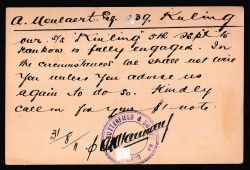 A. Moulaert, Esq. 239. Kuling
our S/S Kuling 5th Sept. to
Hankow is fully engaged. In
the circumstances we shall not wire
you unless you advise us
again to do so. Kindly
call in for your $1 note.
31/8/11
BUTTERFIELD &